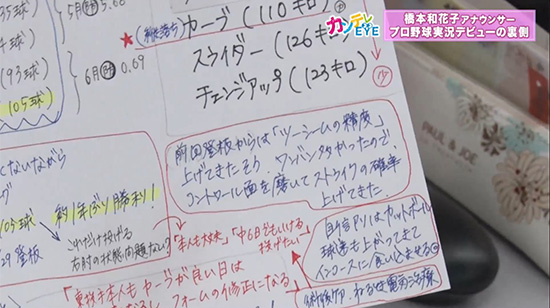 カンテレEYE
橋本和花子アナウンサー
プロ野球実況デビューの裏側
35球)
5月 5.66
球)
6月 0.69
(93球)
105球)
★(縦落ち) カーブ (110キロ)
スライダー (126キロ)
チェンジアップ (123キロ)
少
前回登板からは「ツーシームの精度」
上げてきたそう ワンバン多かったので
コントロール面を磨いてストライクの確率
上げてきた
くないながら
約1年ぶり勝利!
105球
29登板
これだけ投げる
右肘の状態問題ない
「本人も大丈夫」「中6日でもいける
投げたい」
カーブが良い日は
フォームの修正になる
自信アリはカットボール
球速も上がってきて
インコースに食い込ませる
PAUL & JOE